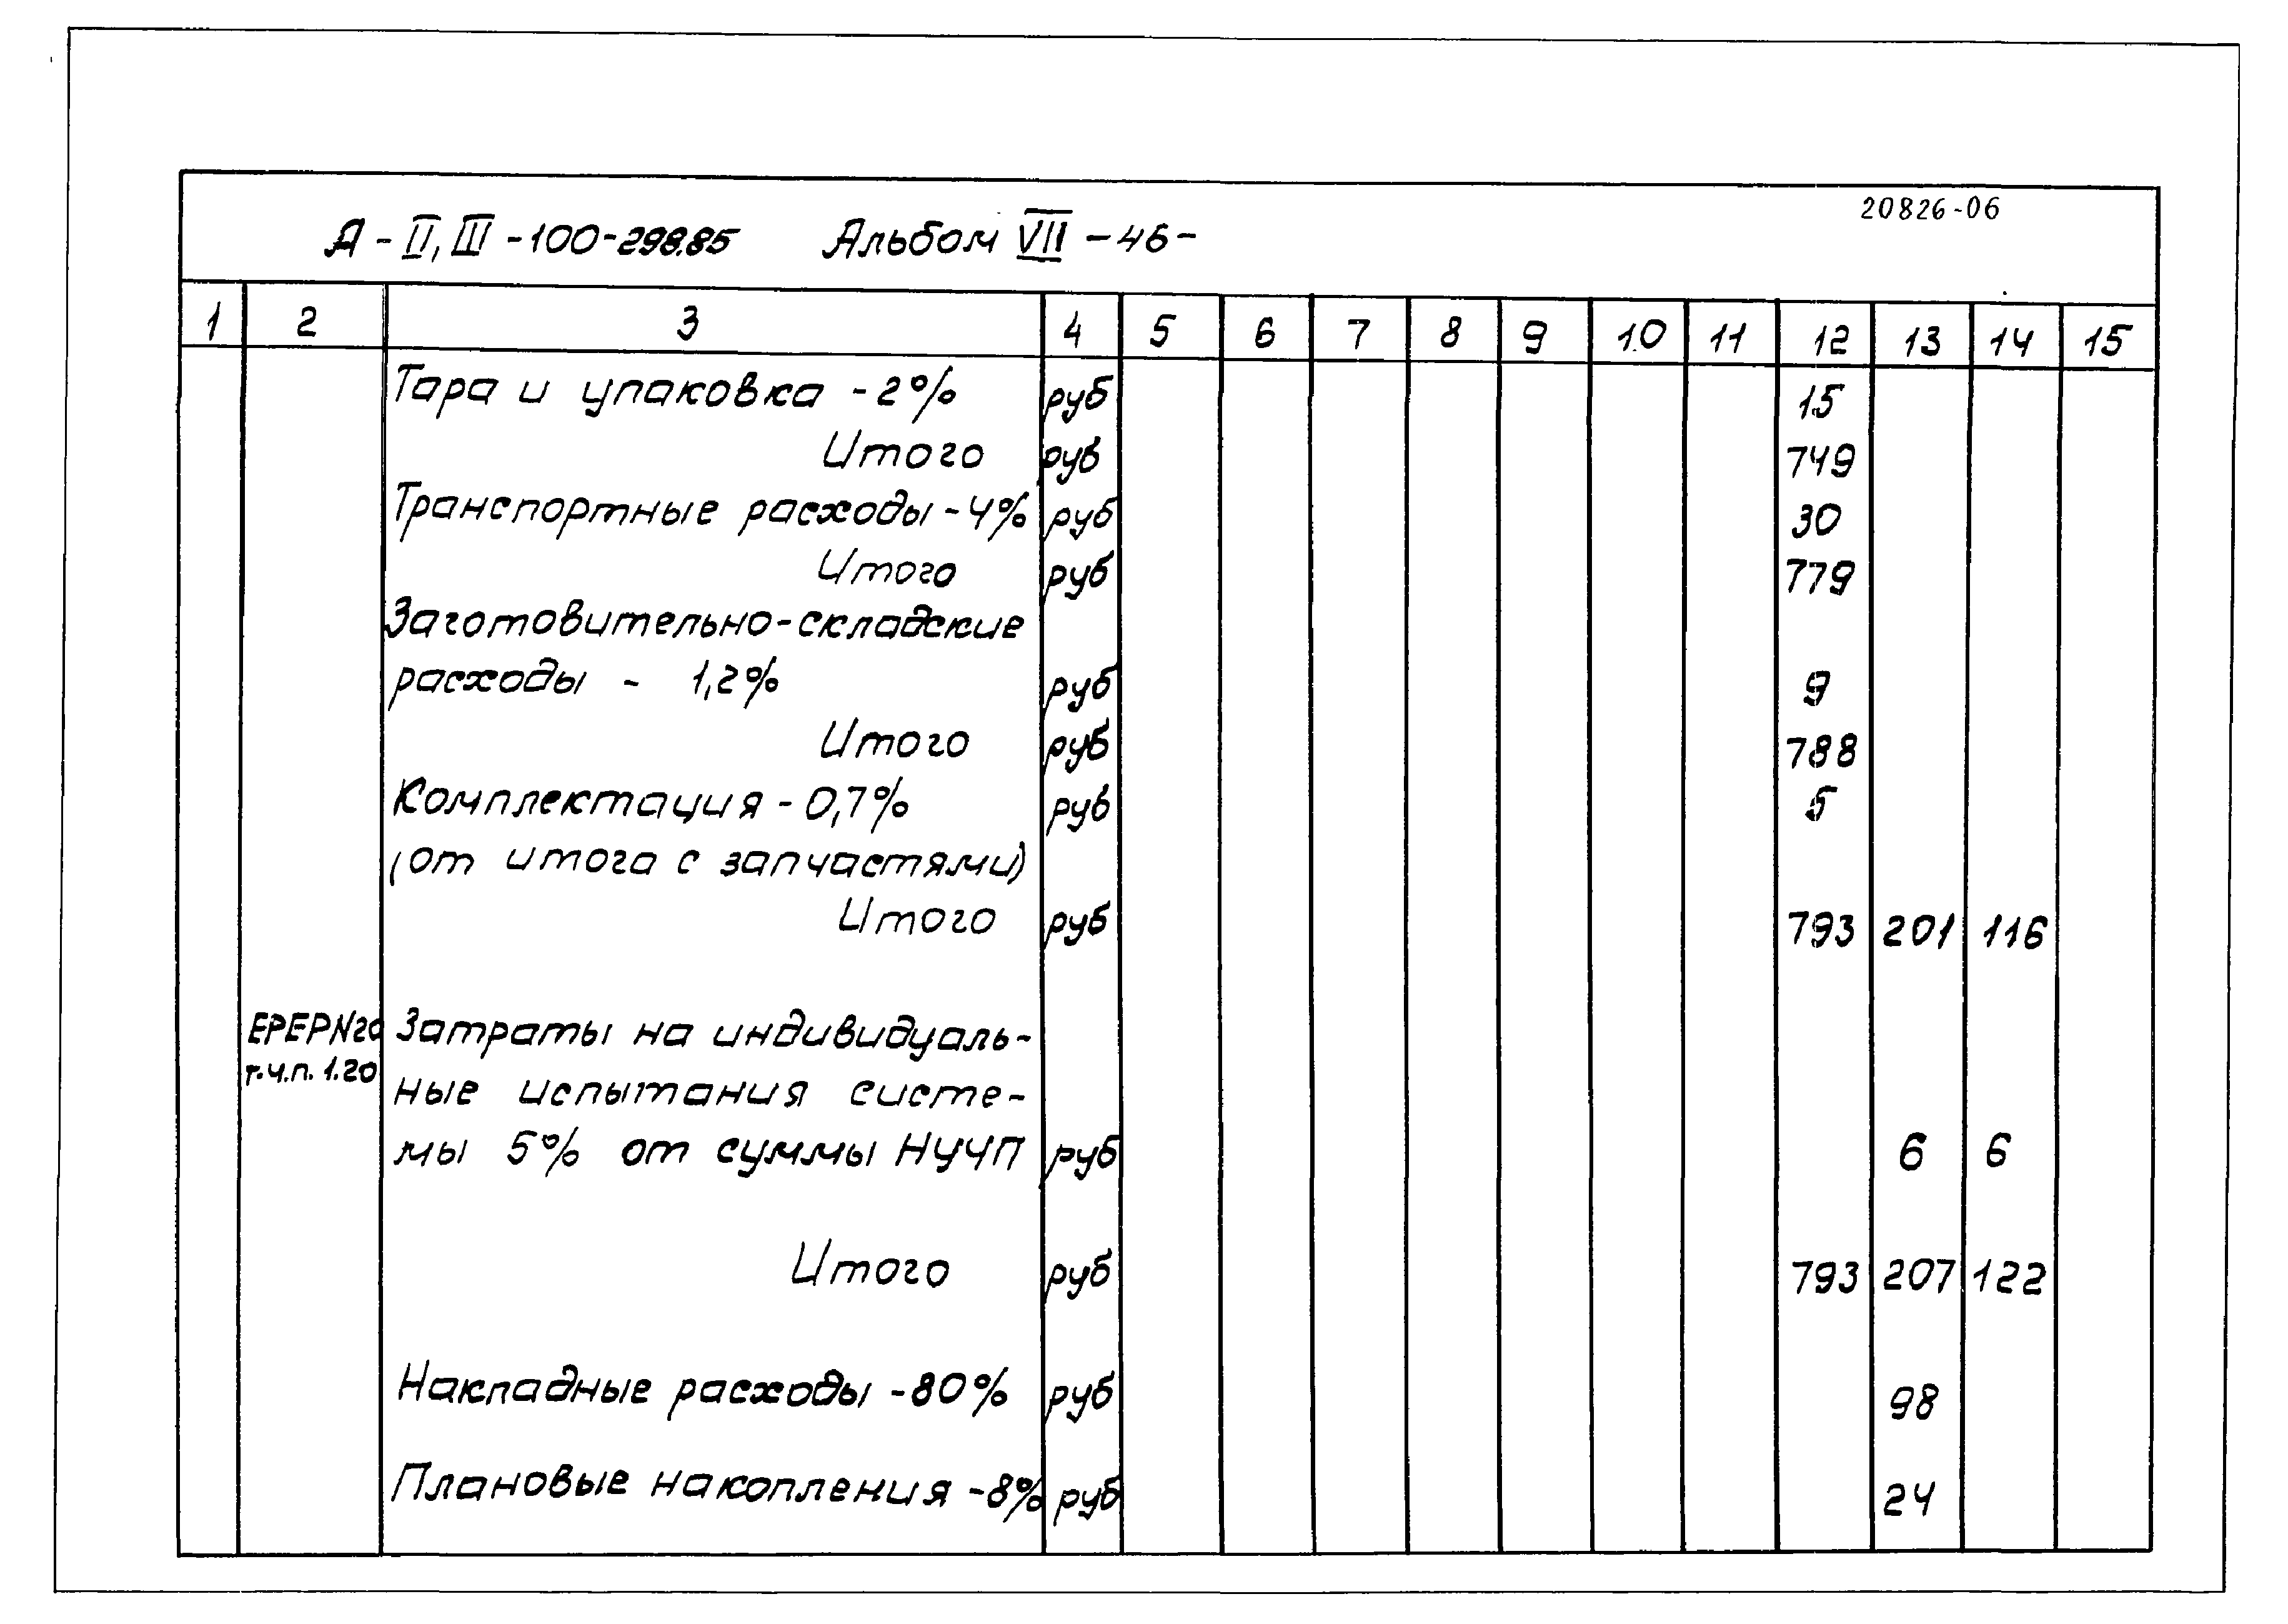 20826-06
А - II, III - 100-298.85 Альбом VII - 46 -
1 2 3 4 5 6 7 8 9 10 11 12 13 14 15
Тара и упаковка - 2% руб 15
Итого руб 749
Транспортные расходы - 4% руб 30
Итого руб 779
Заготовительно-складские
расходы - 1,2% руб 9
Итого руб 788
Комплектация - 0,7% руб 5
(от итога с запчастями)
Итого руб 793 201 116
ЕРЕРN20 Затраты на индивидуаль-
т.ч.п. 1.20 ные испытания систе-
мы 5% от суммы НУЧП руб 6 6
Итого руб 793 207 122
Накладные расходы - 80% руб 98
Плановые накопления - 8% руб 24